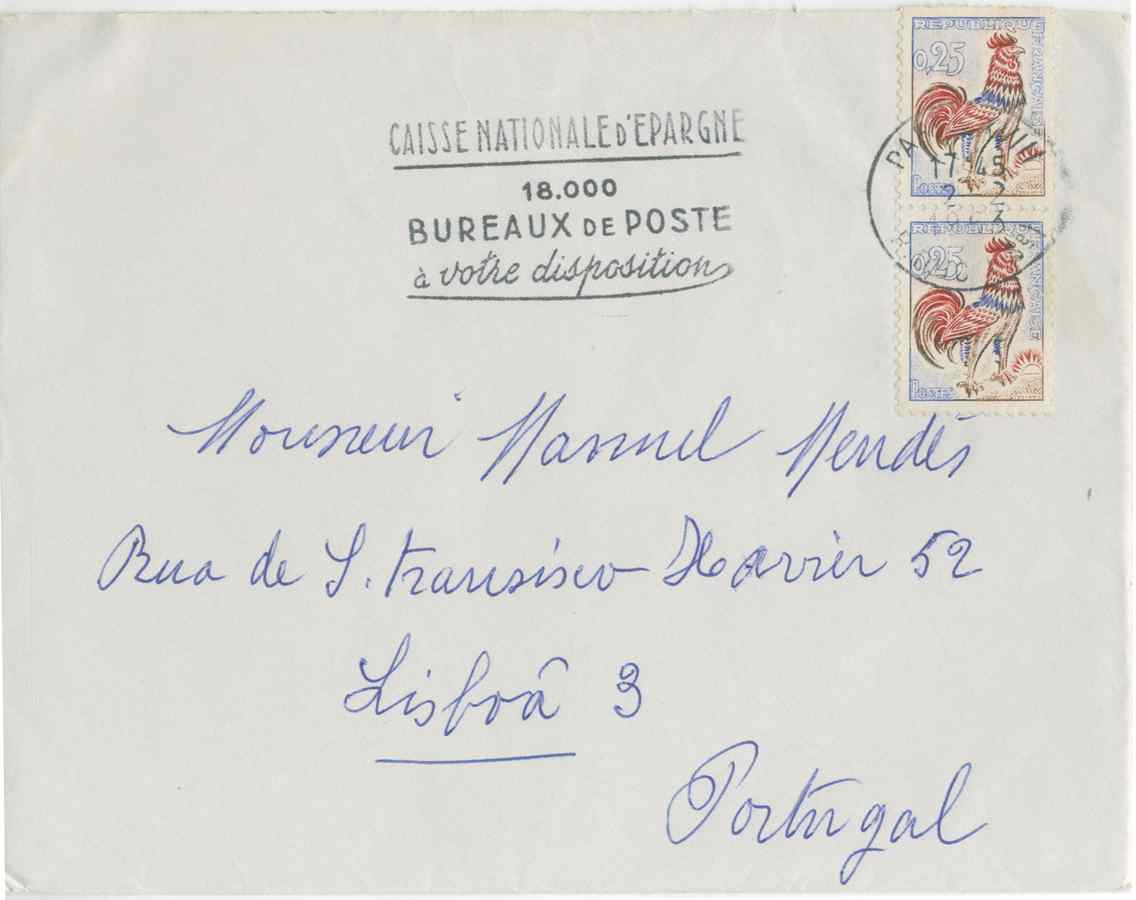 REPUBLIQUE FRANÇAISE
0,25
POSTES
CAISSE NATIONALE D'EPARGNE
18.000
BUREAUX DE POSTE
à votre disposition
17 45
2 2
REPUBLIQUE FRANÇAISE
0,25
POSTES
Monsieur Manuel Mendès
Rua de S. Fransisco Xavier 52
Lisboâ 3
Portugal